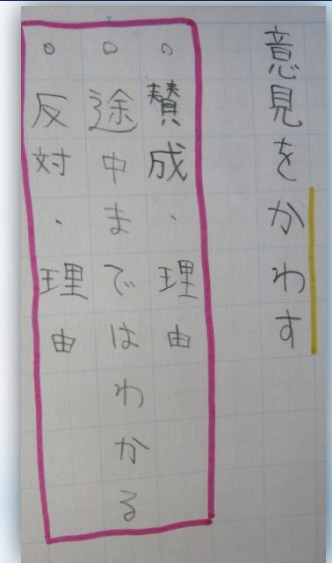 意見をかわす
○賛成・理由
○途中まではわかる
○反対・理由